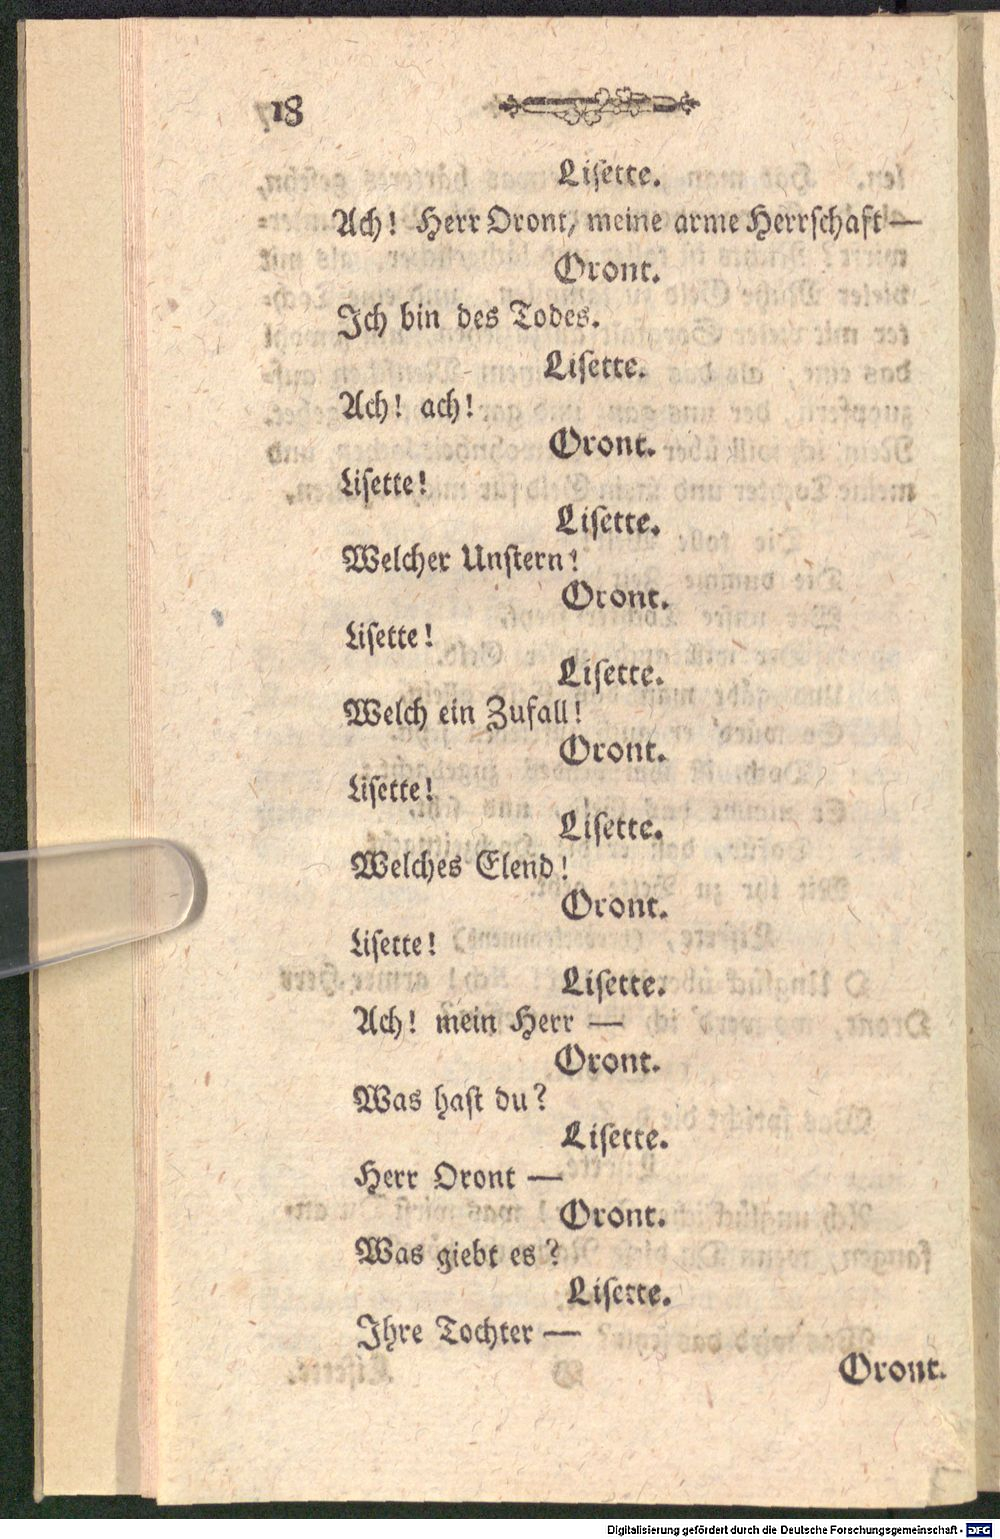 18
Liſette.
Ach! Herr Oront, meine arme Herrſchaft —
Oront.
Ich bin des Todes.
Liſette.
Ach! ach!
Oront.
Liſette!
Liſette.
Welcher Unſtern!
Oront.
Liſette!
Liſette.
Welch ein Zufall!
Oront.
Liſette!
Liſette.
Welches Elend!
Oront.
Liſette!
Liſette.
Ach! mein Herr —
Oront.
Was haſt du?
Liſette.
Herr Oront —
Oront.
Was giebt es?
Liſette.
Ihre Tochter —
Oront.
Digitalisierung gefördert durch die Deutsche Forschungsgemeinschaft - DFG